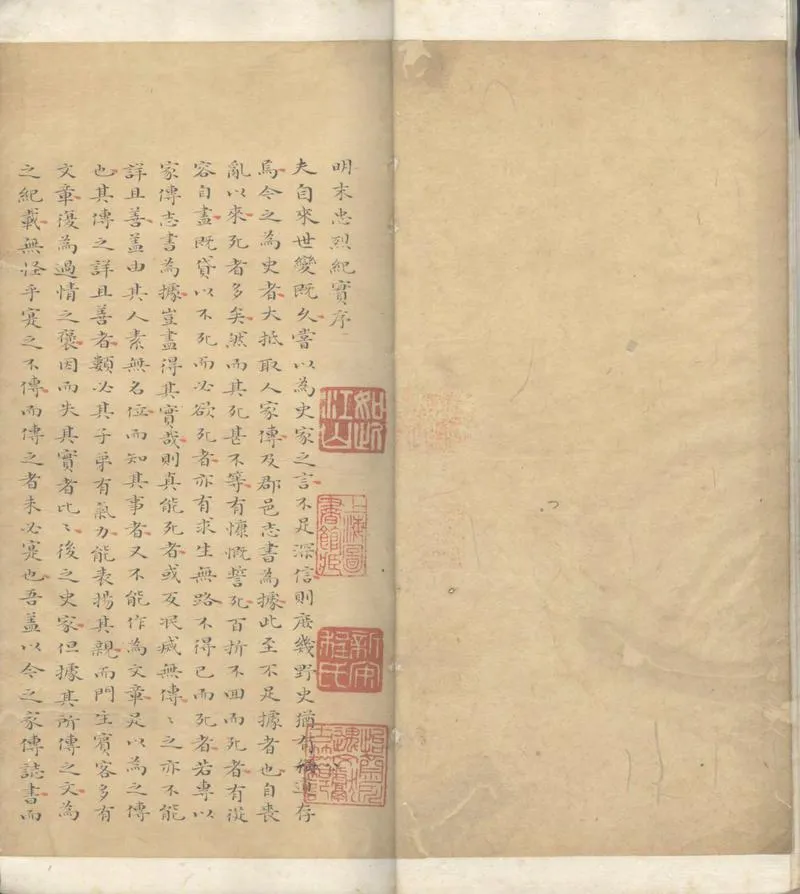 明末忠烈紀實序
夫自來世變既久嘗以為史家之言不足深信則庶幾野史猶有道存
焉今之為史者大抵取人家傳及郡邑志書為據此至不足據者也自喪
亂以來死者多矣然而其死甚不等有慷慨誓死百折不回而死者有從
容自盡既貸以不死而必欲死者亦有求生無路不得已而死者若專以
家傳志書為據豈盡得其實哉則真能死者或反泯滅無傳〻之亦不能
詳且善蓋由其人素無名位而知其事者又不能作為文章足以為之傳
也其傳之詳且善者類必其子弟有氣力能表揚其親而門生賓客多有
文章復為過情之褒因而失其實者比〻後之史家但據其所傳之文為
之紀載無怪乎寔之不傳而傳之者未必寔也吾蓋以今之家傳誌書而
如此江山
上海圖書館藏
新安程氏